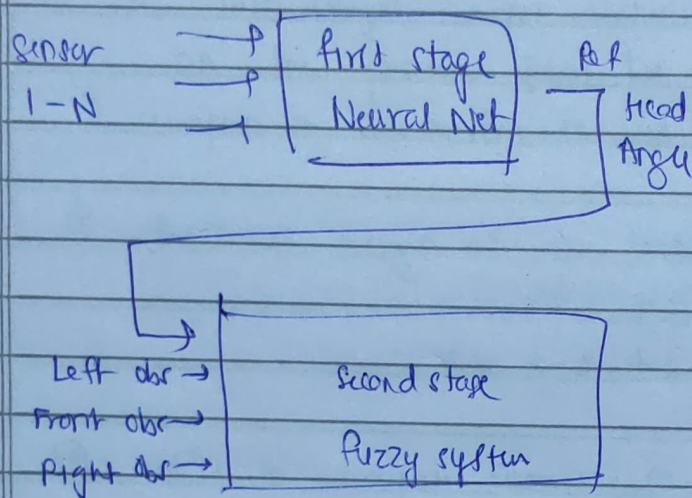 Sensor
1-N
first stage
Neural Net
Ref
Head
Angle
Left obs
Front obs
Right obs
second stage
fuzzy system